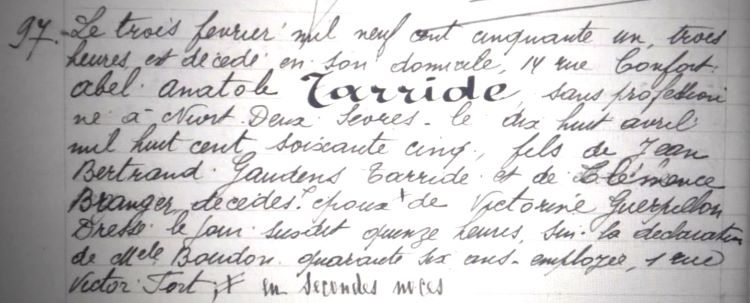 97. - Le trois fevrier mil neuf cent cinquante un, trois
heures est décédé en son domicile, 14 rue Confort
Abel Anatole Tarride, sans profession
né à Niort Deux Sevres - le dix huit avril
mil huit cent soixante cinq, fils de Jean
Bertrand Gaudens Tarride et de Clémence
Branger, décédés. époux + de Victorine Guerpillon
Dressé le jour susdit quinze heures, sur la declaration
de Mele Boudon quarante six ans - employée, 1 rue
Victor Fort, + en secondes noces